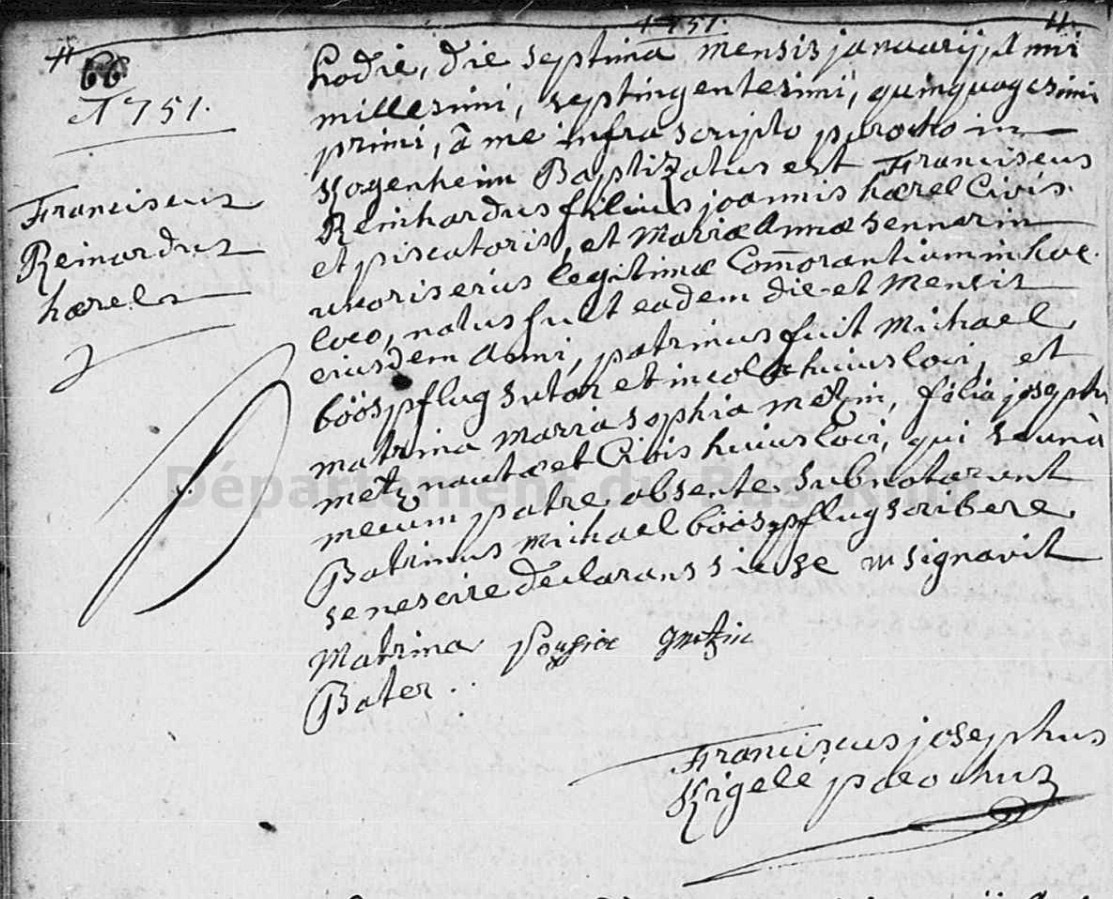 1751.
66
1751.
Franciscus
Reinardus
hærel
hodie, die septima mensis januarij, Anni
millesimi, septingentesimi, quinquagesimi
primi, â me infra scripto parocho in
Kogenheim Baptizatus est Franciscus
Reinhardus filius joannis hærel Civis
et piscatoris, et Mariæ Annæ sennerin
uxoris eius legitimæ Com̄orantium in hoc
loco, natus fuit eadem die et Mensis
eiusdem Anni, patrinus fuit Michael
böospflug sutor et incola huius loci, et
matrina maria sophia metzin, filia josephi
metz nautæ et Civis huius loci, qui se una
mecum patre absente subnotarunt
Patrinus michael böospflug scribere
se nescire declarans sic se insignavit
Matrina
Pater . .
Franciscus josephus
Kigele parochus
Département du Bas-Rhin